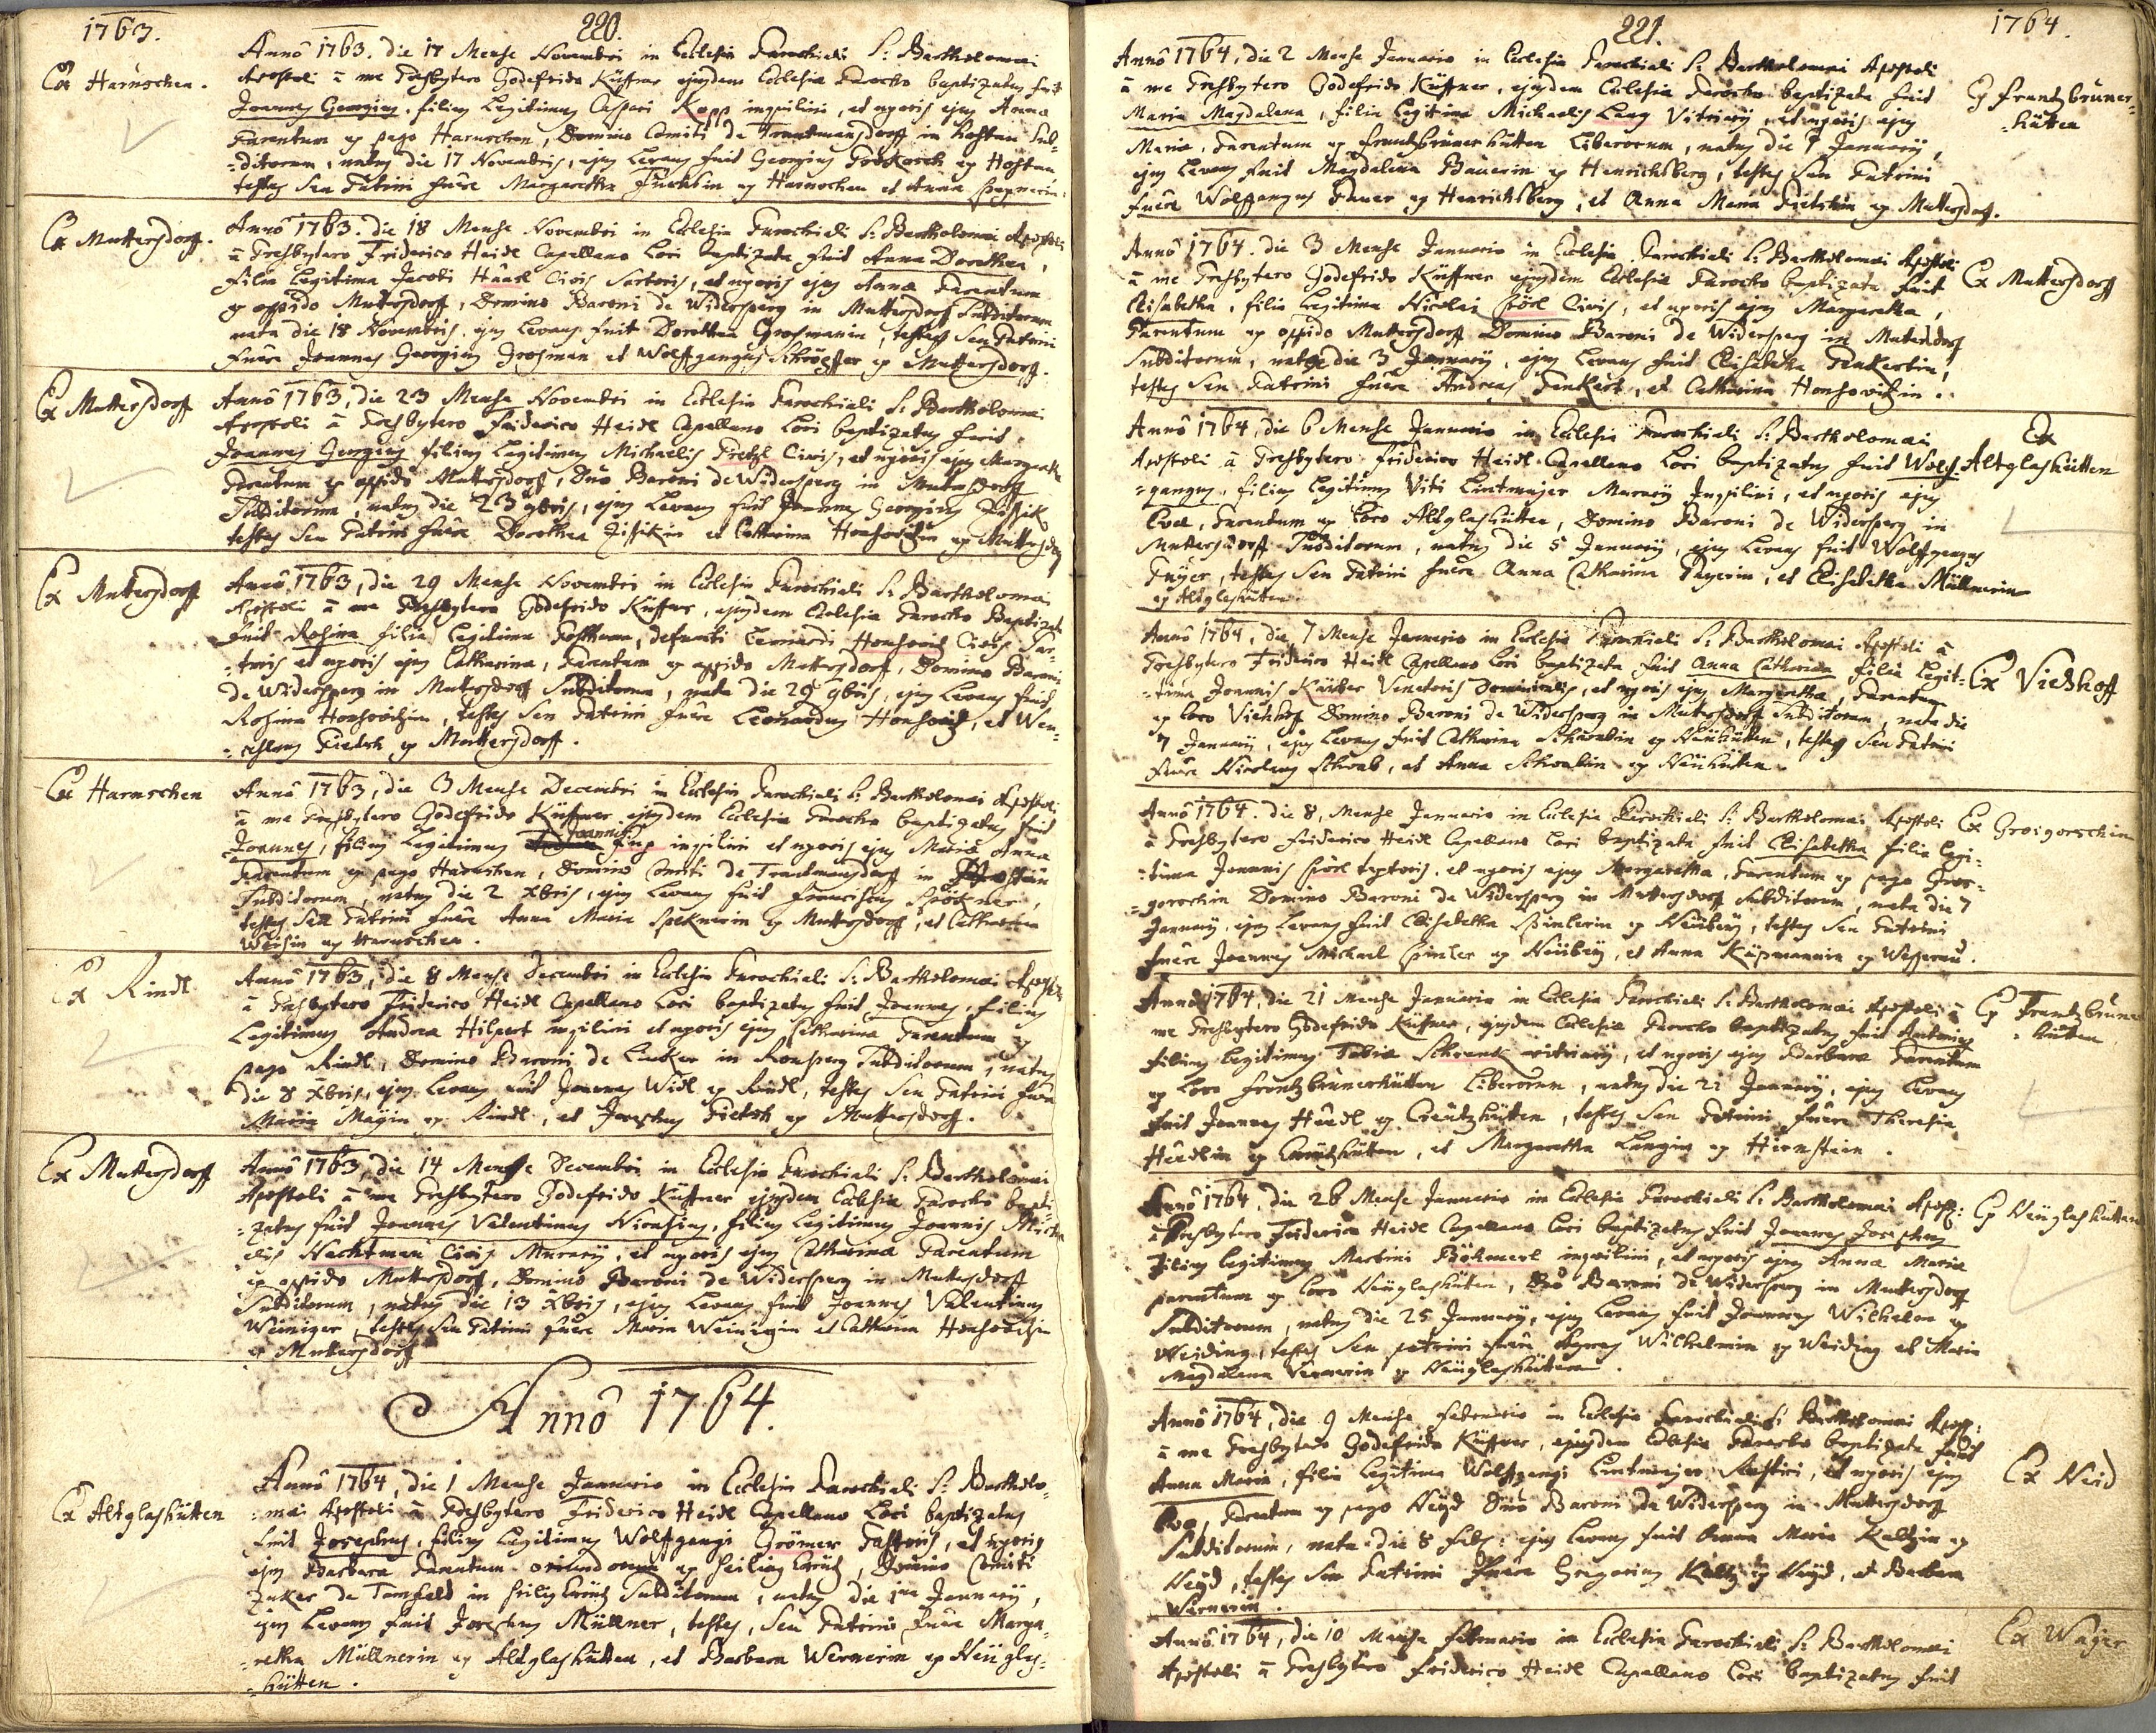 1763.
220.
Ex Harnschen.
Annô 1763. die 17 Mense Novembri in Ecclesia Parochiali S: Bartholomæi
Apostoli à me Presbytero Godefrido Küffner ejusdem Ecclesiæ Parocho baptizatus fuit
Joannes Georgius. filius Legitimus Caspari Kopp inquilini, et uxoris ejus Anna
Parentum ex pago Harnschen, Domino Comiti de Trautmansdorff in Hostau Sub-
=ditorum, natus die 17 Novembris, ejus Levans fuit Georgius ex Hostau,
testes seu Patrini fuêre Margaretha ex Harnschen et Anna
Ex Muttersdorff.
Annô 1763. die 18 Mense Novembri in Ecclesia Parochiali S: Bartholomæi Apostoli
à Presbytero Friderico Heidl Capellano Loci baptizata fuit Anna Dorothea,
filia Legitima Jacobi Civis Sartoris, et uxoris ejus Annæ Parentum
ex oppido Muttersdorff, Domino Baroni de Widersperg in Muttersdorff Subditorum
nata die 18 Novembris. ejus Levans fuit Dorothea Grosmanin, testes seu Patrini
fuêre Joannes Georgius Grosman et Wolffgangus ex Muttersdorff.
Ex Muttersdorff
Annô 1763, die 23 Mense Novembri in Ecclesia Parochiali S: Bartholomæi
Apostoli à Presbytero Friderico Heidl Capellano Loci baptizatus fuit
Joannes Georgius filius Legitimus Michaelis Civis, et uxoris ejus Margaretha
Parentum ex oppido Muttersdorff, Dnô Baroni de Widersperg in Muttersdorff
Subditorum, natus die 23 9bris, ejus Levans fuit Joannes Georgius
testes seu Patrini fuêre Dorothea et Catharina Honsowitzin ex Muttersdorff
Ex Muttersdorff
Annô 1763, die 29 Mense Novembri in Ecclesia Parochiali S: Bartholomæi
Apostoli à me Presbytero Godefrido Küffner, ejusdem Ecclesiæ Parocho Baptizata
fuit Rosina filia Legitima Posthuma, defuncti Leonardi Honsowitz Civis Sar-
=toris et uxoris ejus Catharina, Parentum ex oppido Muttersdorff, Domino Baroni
de Widersperg in Muttersdorff Subditorum, nata die 29 9bris, ejus Levans fuit
Rosina Honsowitzin, testes seu Patrini fuêre Leonardus Honsowitz, et Wen-
=ceslaus Pietsch ex Muttersdorff.
Ex Harnschen
Annô 1763, die 3 Mense Decembri in Ecclesia Parochiali S: Bartholomæi Apostoli
à me Presbytero Godefrido Küffner ejusdem Ecclesiæ Parocho baptizatus fuit
Joannes, filius Legitimus Joannis inquilini et uxoris ejus Maria Anna
Parentum ex pago Harnschen, Domino Comiti de Trautmansdorff in Hostau
Subditorum, natus die 2 Xbris, ejus Levans fuit Franciscus
testes seu Patrini fuêre Anna Maria ex Muttersdorff, et Catharina
ex Harnschen.
Ex Rindl
Annô 1763, die 8 Mense Decembri in Ecclesia Parochiali S: Bartholomæi Apostoli
à Presbytero Friderico Heidl Capellano Loci baptizatus fuit Joannes, filius
Legitimus Andrea Hilpert inquilini et uxoris ejus Catharina Parentum ex
pago Rindl, Domino Baroni de Linker in Ronsperg Subditorum, natus
die 8 Xbris, ejus Levans fuit Joannes Widl ex Rindl, testes seu Patrini fuêre
Maria ex Rindl, et Josephus Pietsch ex Muttersdorff.
Ex Muttersdorff
Annô 1763, die 14 Mense Decembri in Ecclesia Parochiali S: Bartholomæi
Apostoli à me Presbytero Godefrido Küffner ejusdem Ecclesiæ Parocho bapti-
=zatus fuit Joannes Valentinus Nicasius, filius Legitimus Joannis Micha
elis Nachtman Civis Murarij, et uxoris ejus Catharina Parentum
ex oppido Muttersdorff, Domino Baroni de Widersperg in Muttersdorff
Subditorum, natus die 13 Xbris, ejus Levans fuit Joannes Valentinus
Weiniger, testes seu Patrini fuêre Maria et Catharina Honsowitzin
ex Muttersdorff
Annô 1764.
Ex Altglashütten
Annô 1764, die 1 Mense Januario in Ecclesia Parochiali S: Bartholo-
=mæi Apostoli à Presbytero Friderico Heidl Capellano Loci baptizatus
fuit Josephus, filius Legitimus Wolffgangi Grömer Pastoris, et uxoris
ejus Barbara Parentum oriundorum ex Heilig Creütz, Domino Comiti
Zuker de Tamfeld in Heilig Creütz Subditorum, natus die 1ma Januarij,
ejus Levans fuit Josephus Müllner, testes, seu Patrini fuêre Marga-
=retha Müllnerin ex Altglashütten, et Barbara Wernerin ex Neüglas-
=hütten.
221.
1764.
Annô 1764, die 2 Mense Januario in Ecclesia Parochiali S: Bartholomæi Apostoli
à me Presbytero Godefrido Küffner, ejusdem Ecclesiæ Parocho baptizata fuit
Maria Magdalena, filia Legitima Michaelis Lang Vitriarij, et uxoris ejus
Maria, Parentum ex Frantzbrunerhütten Liberorum, natus die 1 Januarij,
ejus Levans fuit Magdalena Bäuerin ex Henrichsberg, testes seu Patrini
fuêre Wolffgangus Pauer ex Henrichsberg, et Anna Maria Pietschin ex Muttersdorff.
Ex Frantzbruner-
=hütten
Annô 1764. die 3 Mense Januario in Ecclesia Parochiali S: Bartholomæi Apostoli
à me Presbytero Godefrido Küffner ejusdem Ecclesiæ Parocho baptizata fuit
Elisabetha, filia Legitima Nicolai Civis, et uxoris ejus Margaretha,
Parentum ex oppido Muttersdorff Domino Baroni de Widersperg in Muttersdorff
Subditorum, nata die 3 Januarij, ejus Levans fuit Elisabetha Penkertin,
testes seu Patrini fuêre Andreas Penkert, et Catharina Honsowitzin.
Ex Muttersdorff
Annô 1764, die 6 Mense Januario in Ecclesia Parochiali S: Bartholomæi
Apostoli à Presbytero Friderico Heidl Capellano Loci baptizatus fuit Wolff-
=gangus, filius Legitimus Viti Lintmajer Murarij Inquilini, et uxoris ejus
Evæ, Parentum ex Loco Altglashütten, Domino Baroni de Widersperg in
Muttersdorff Subditorum, natus die 5 Januarij, ejus Levans fuit Wolffgangus
testes seu Patrini fuêre Anna Catharina et Elisabetha Müllnerin
ex Altglashütten.
Ex
Altglashütten
Annô 1764, die 7 Mense Januario in Ecclesia Parochiali S: Bartholomæi Apostoli à
Presbytero Friderico Heidl Capellano Loci baptizata fuit Anna Catharina filia Legit-
=tima Joannis Kürber Venatoris Dominicalis, et uxoris ejus Margaretha, Parentum
ex Loco Viehhoff Domino Baroni de Widersperg in Muttersdorff Subditorum, nata die
7 Januarij, ejus Levans fuit Catharina Schwabin ex Neühütten, testes seu Patrini
fuêre Nicolaus Schwab, et Anna Schwabin ex Neühütten.
Ex Viehhoff
Annô 1764. die 8, Mense Januario in Ecclesia Parochiali S: Bartholomæi Apostoli
à Presbytero Friderico Heidl Capellano Loci baptizata fuit Elisabetha filia Legi-
=tima Joannis textoris, et uxoris ejus Margaretha, Parentum ex pago Groi-
=gorschin Domino Baroni de Widersperg in Muttersdorff Subditorum, nata die 7
Januarij, ejus Levans fuit Elisabetha ex Neübey, testes seu Patrini
fuêre Joannes Michael ex Neübey, et Anna ex
Ex Groigorschin
Annô 1764, die 21 Mense Januario in Ecclesia Parochiali S: Bartholomæi Apostoli à
me Presbytero Godefrido Küffner, ejusdem Ecclesiæ Parocho baptizatus fuit Antonius
filius Legitimus Tobiæ Schrenk vitriarij, et uxoris ejus Barbara Parentum
ex Loco Frantzbrunerhütten Liberorum, natus die 21 Januarij, ejus Levans
fuit Joannes Heidl ex Creützhütten, testes seu Patrini fuêre Theresia
Heidlin ex Creützhütten, et Margaretha Langin ex Hirnstein.
Ex Frantzbruner
=hütten
Annô 1764, die 26 Mense Januario in Ecclesia Parochiali S: Bartholomæi Apost:
à Presbytero Friderico Heidl Capellano Loci baptizatus fuit Joannes Josephus
filius Legitimus Martini Böhmerl inquilini, et uxoris ejus Anna Maria
parentum ex Loco Neüglashütten, Dnô Baroni de Widersperg in Muttersdorff
Subditorum, natus die 25 Januarij, ejus Levans fuit Joannes Wilhelm ex
Weiding, testes seu patrini fuêre Agnes Wilhelmin ex Weiding et Maria
Magdalena Wernerin ex Neüglashütten.
Ex Neüglashütten
Annô 1764, die 9 Mense Februario in Ecclesia Parochiali S: Bartholomæi Apost:
à me Presbytero Godefrido Küffner, ejusdem Ecclesiæ Parocho baptizata fuit
Anna Maria, filia Legitima Wolffgangi Lintmajer Rustici, et uxoris ejus
Eva, Parentum ex pago Neyd Dnô Baroni de Widersperg in Muttersdorff
Subditorum, nata die 8 Feb: ejus Levans fuit Anna Maria Kaltzin ex
Neyd, testes seu Patrini fuêre Gregorius Kaltz ex Neyd, et Barbara
Wernerin.
Ex Neid
Annô 1764, die 10 Mense Februario in Ecclesia Parochiali S: Bartholomæi
Apostoli à Presbytero Friderico Heidl Capellano Loci baptizatus fuit
Ex Wajer